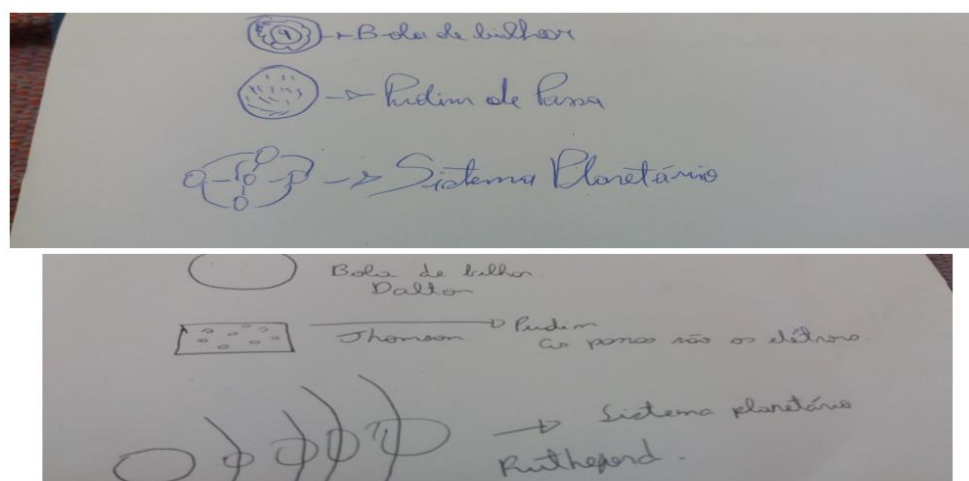 Bola de bilhar
Pudim de Passa
Sistema Planetário
Bola de bilhar
Dalton
Jhomson Pudim
as passas são os elétrons.
Sistema planetário
Rutheford.